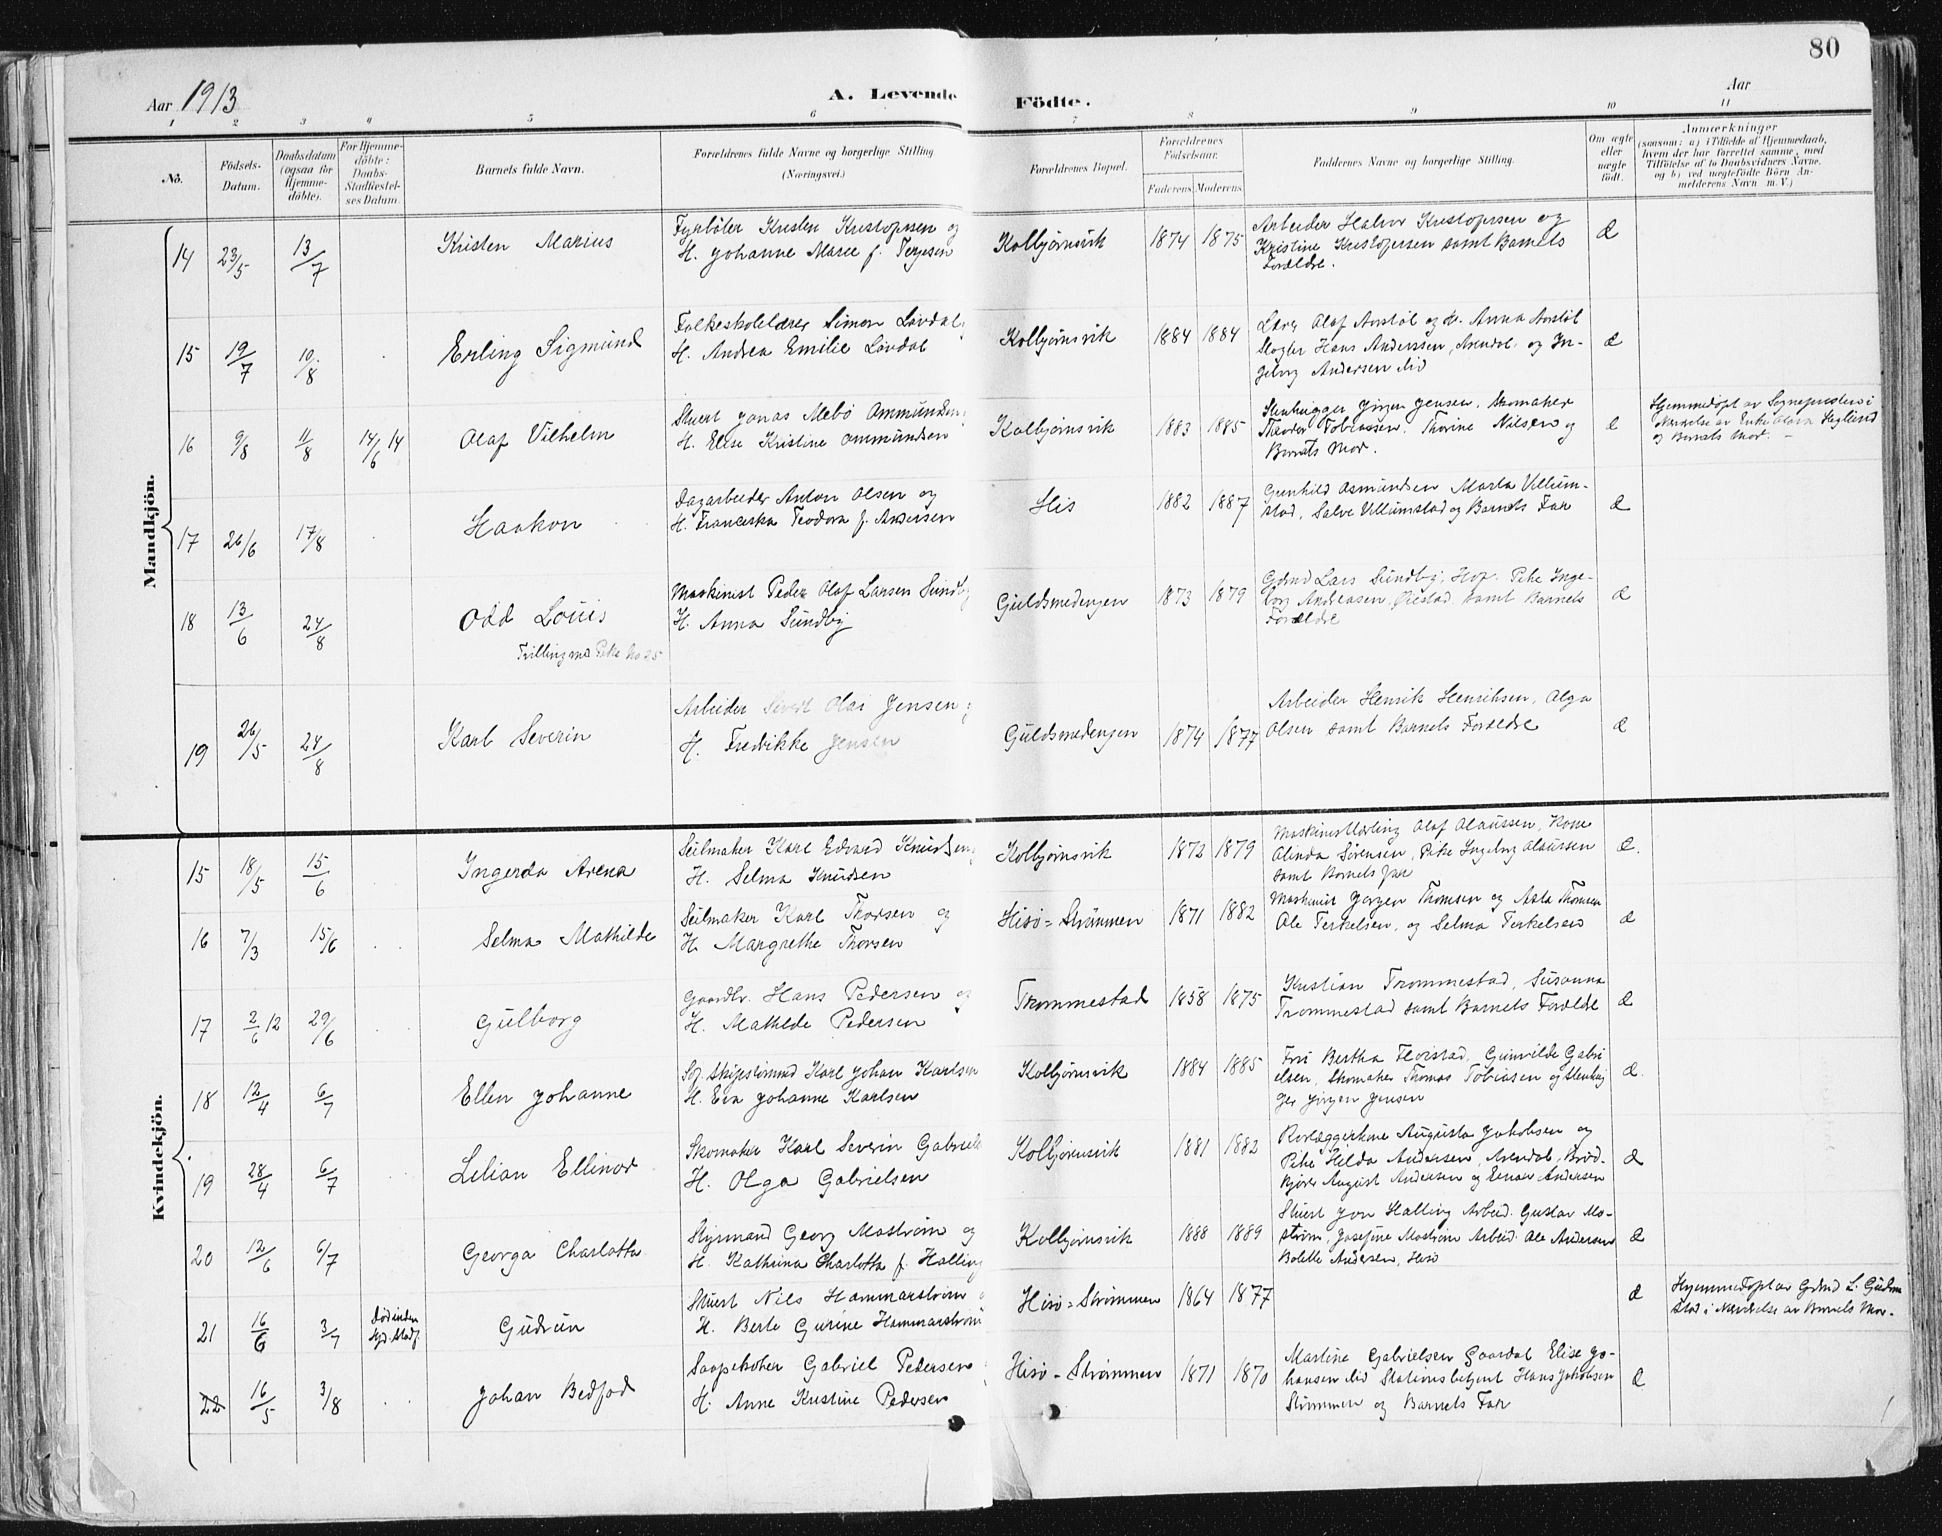 80
Aar 1913
A. Levende Födte.
Aar
1 2 3 4 5 6 7 8 9 10 11
No.
Födsels-Datum.
Daabsdatum (ogsaa for Hjemme-döbte).
For Hjemme-döbte: Daabs-Stadfæstel-ses Datum.
Barnets fulde Navn.
Forældrenes fulde Navne og borgerlige Stilling (Næringsvei.)
Forældrenes Bopæl.
Forældrenes Födselsaar.
Faderens. Moderens.
Faddernes Navne og borgerlige Stilling.
Om ægte eller uægte födt.
Anmærkninger
(saasom: a) i Tilfælde af Hjemmedaab, hvem der har forrettet samme, med Tilföielse af to Daabsvidners Navne. og b) ved uægtefödte Börn An-melderens Navn m. V.)
Mandkjön.
14 23/5 13/7 Kristen Marius
Fyrböter Kristen Kristopersen og
H. Johanne Marie f. Terjesen
Kolbjørnsvik 1874 1875
Arbeider Halvor Kristopersen og
Kristine Kristopersen samt Barnets
Forældre.
Æ
15 19/7 10/8 Erling Sigmund
Folkeskolelærer Simon Løvdal
H. Andrea Emilie Løvdal
Kolbjørnsvik 1884 1884
Lærer Olaf Aorstöl og H. Anna Aorstöl
Slagter Hans Anderssen, Arendal og In-
geborg Andersen ibid
Æ
16 9/8 11/8 14/6 14 Olaf Vilhelm
Stuert Jonas Mebö Ommundsen
H. Elise Kristine Ommundsen
Kolbjørnsvik 1883 1885
Stenhugger Jörgen Jensen, Skomaker
Teodor Tobiassen. Thorine Nilsen og
Barnets Mor.
Æ
Hjemmedöpt av Sognepresten i
Nærvelse av Enke
og Barnets Mor.
17 26/6 17/8 Haakon
Dagarbeider Anton Olsen og
H. Franceska Teodora f. Andersen
His 1882 1887
Gunhild Osmundsen Marta Villum-
stad, Salve Villumstad og Barnets Far
Æ
18 13/6 24/8 Odd Louis
Tvilling med Pike No 25
Maskinist Peder Olaf Larsen Sundby
H. Anna Sundby
Guldsmedengen 1873 1879
Gdmd Lars Sundby, Hop. Pike Inge-
borg Andreasen, Øiestad samt Barnets
Forældre
Æ
19 26/5 24/8 Karl Severin
Arbeider Sivert Olai Jensen
H. Fredrikke Jensen
Guldsmedengen 1874 1877
Arbeider Henrik Henriksen, Olga
Olsen samt Barnets Forældre
Æ
Kvindekjön.
15 18/5 15/6 Ingerda Arena
Seilmaker Karl Edvard Knudsen
H. Selma Knudsen
Kolbjørnsvik 1872 1879
Maskinistlærling Olaf Olaussen, Kone
Olinda Sørensen, Pike Ingeborg Olaussen
samt Barnets Far
Æ.
16 7/3 15/6 Selma Mathilde
Seilmaker Karl Thorsen og
H. Margrethe Thorsen
Hisö-Strömmen 1871 1882
Maskinist Jørgen Thomsen og Asta Thomsen
Ole Terkelsen, og Selma Terkelsen
Æ
17 2/6 12 29/6 Gulborg
Gaardbr. Hans Pedersen og
H. Mathilde Pedersen
Trommestad 1858 1875
Kristian Trommestad, Susanna
Trommestad samt Barnets Forældre
Æ
18 12/4 6/7 Ellen Johanne
Skipstömmd Karl Johan Karlsen
H. Eva Johanne Karlsen
Kolbjørnsvik 1884 1885
Fru Bertha Floistad, Gunvilde Gabri
elsen, Skomaker Thomas Tobiasen og Stenhug
ger Jörgen Jensen
Æ.
19 28/4 6/7 Lilian Ellinor
Skomaker Karl Severin Gabriels
H. Olga Gabrielsen
Kolbjørnsvik 1881 1882
Rorlæggerkone Augusta Jakobsen og
Pike Hilda Andersen, Arendal, Bröd-
kjörer August Andersen og Einar Andersen
Æ
20 12/6 6/7 Georga Charlotta
Styrmand Georg Moström og
H. Kathrina Charlotta f. Halling
Kolbjørnsvik 1888 1889
Stuert Jon Halling Arbeid. Gustav Mo-
ström, Josefine Moström Arbeid. Ole Andersen
Bolette Andersen, Hisö
Æ
21 16/6 3/7 död inden Hj. Stadf. Gudrun
Stuert Nils Hammarström
H. Berte Gurine Hammarström
Hisö-Strömmen 1864 1877
Æ
Hjemmedöpt av Grdmd L. Gudm
stad i Nærværelse av Barnets Mor.
22 16/5 3/8 Johan Bedford
Saapekoker Gabriel Pedersen
H. Anne Kristine Pedersen
Hisö-Strömmen 1871 1870
Martine Gabrielsen Gaardal Elise Jo-
hansen ibid Stationsbetjent Hans Jakobsen
Strömmen og Barnets Far
Æ